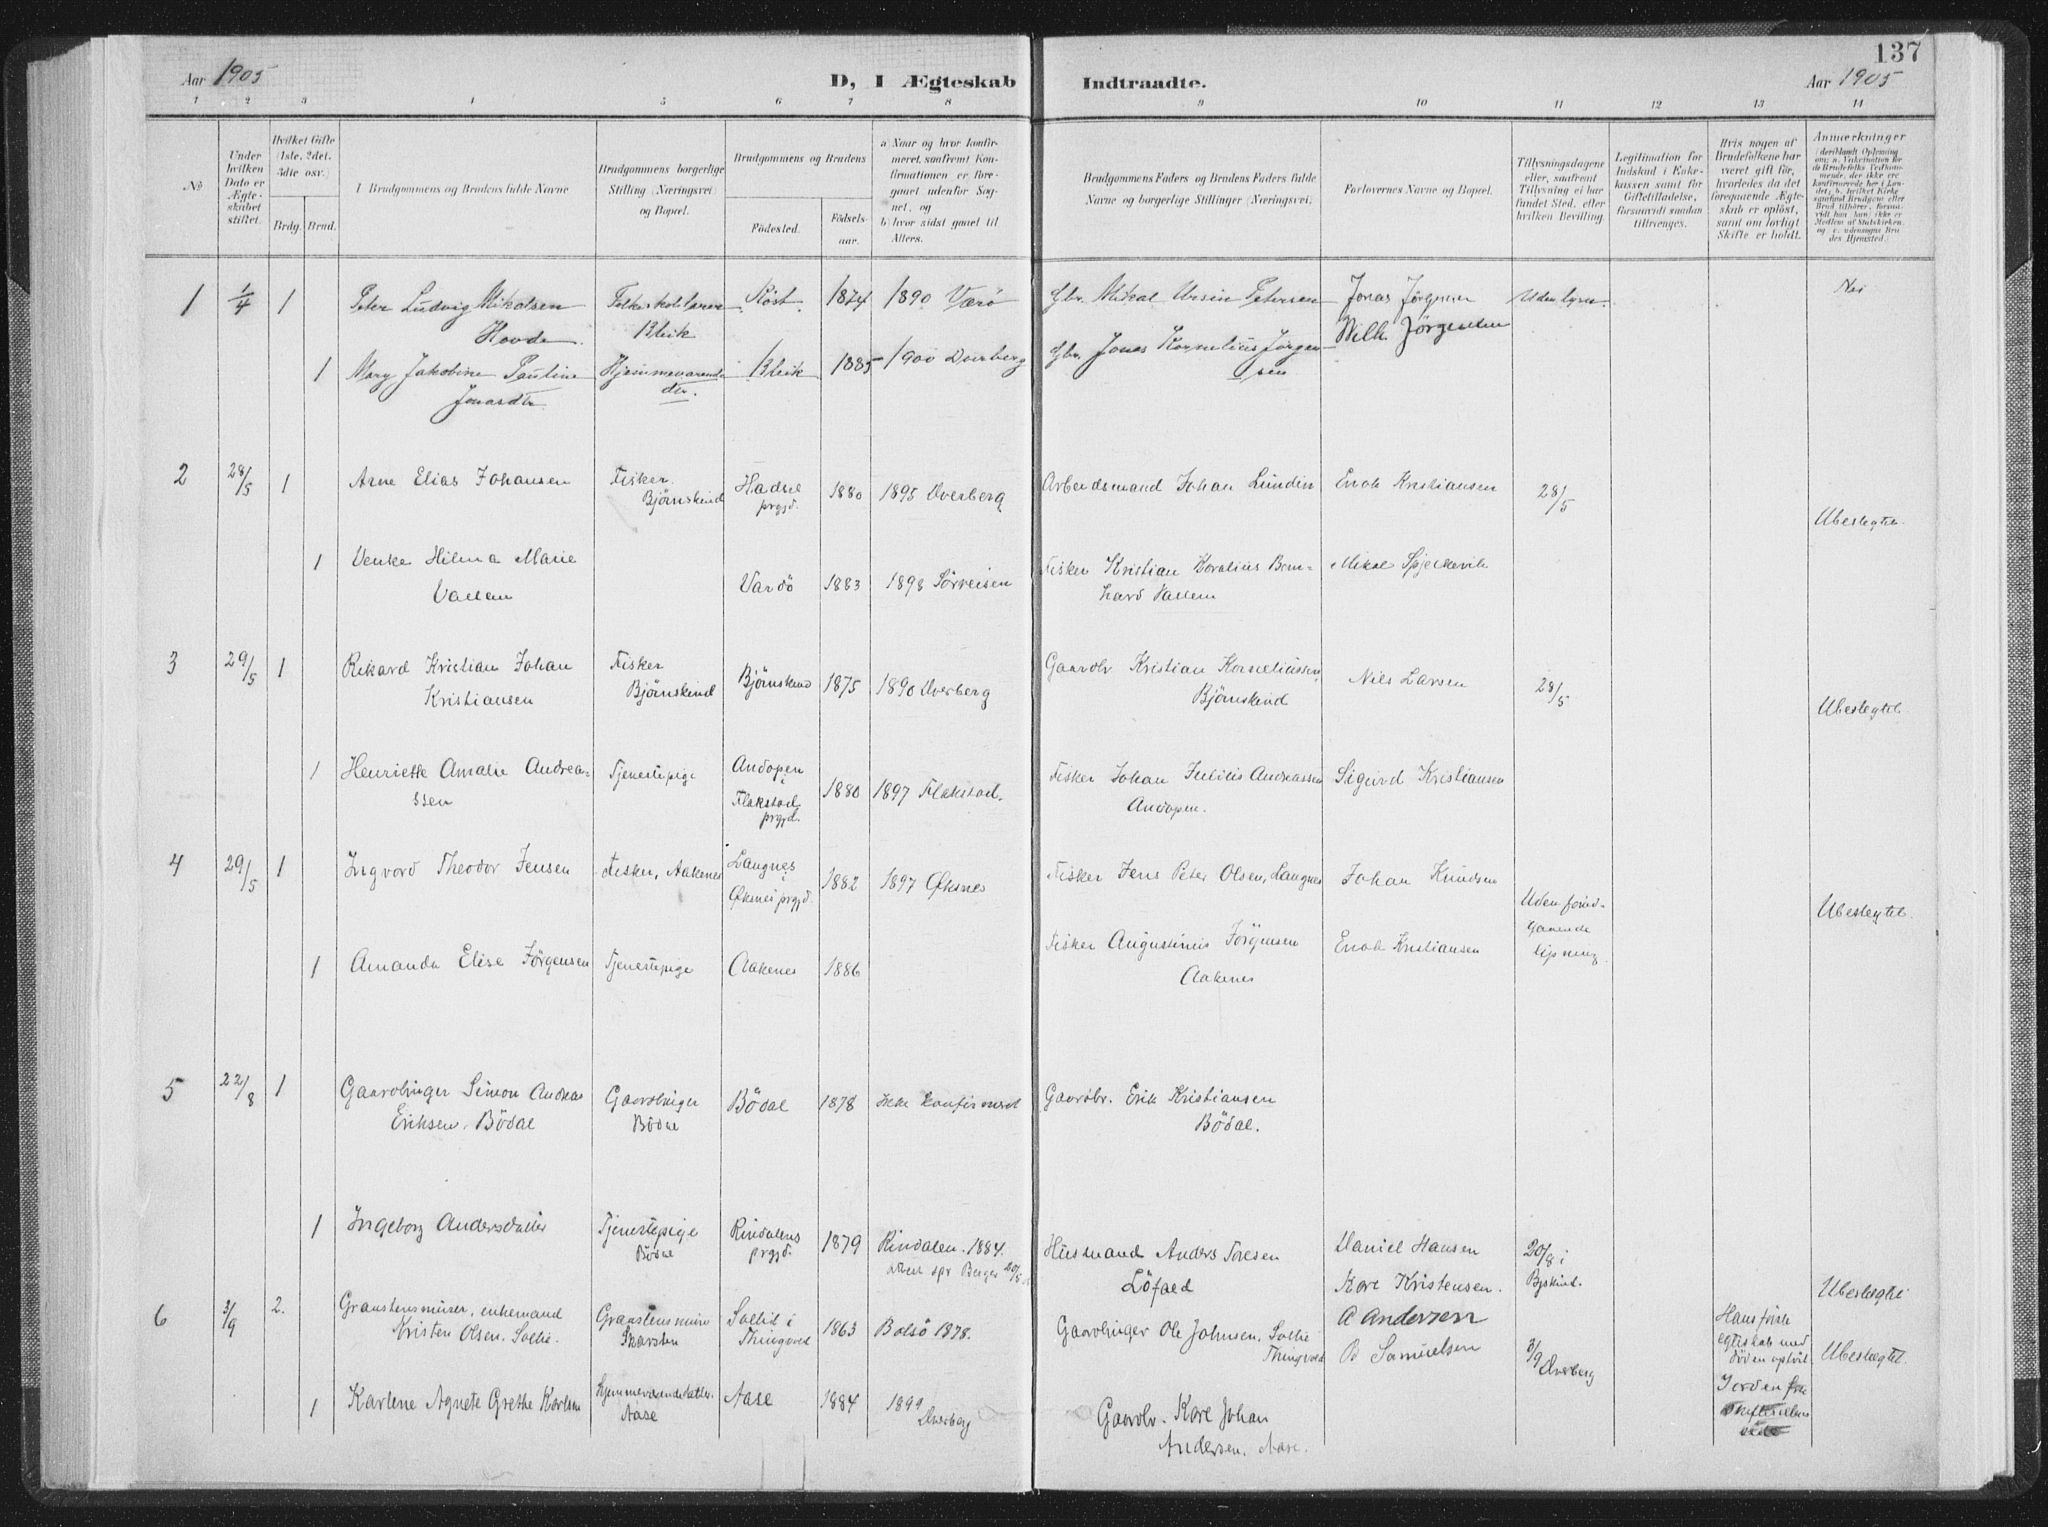 Aar 1905
D, I Ægteskab
Indtraadte.
Aar 1905
137
1 2 3 4 5 6 7 8 9 10 11 12 13 14
No
Under hvilken Dato er Ægteskabet stiftet.
Hvilket Gifte (1ste, 2det, 3die osv.)
Brdg. Brud.
I Brudgommens og Brudens fulde Navne
Brudgommens borgerlige Stilling (Næringsvei) og Bopæl.
Brudgommens og Brudens
Fødested.
Fødselsaar.
a) Naar og hvor konfirmeret, saafremt Konfirmationen er foregaaet udenfor Sognet, og
b) hvor sidst gaaet til Alters.
Brudgommens Faders og Brudens Faders fulde Navne og borgerlige Stillinger (Næringsvei.
Forlovernes Navne og Bopæl.
Tillysningsdagene eller, saafremt Tillysning ei har fundet Sted, efter hvilken Bevilling.
Legitimation for Indskud i Enkekassen samt for Giftetilladelse, forsaavidt saadan tiltrænges.
Hvis nogen af Brudefolkene har været gift før, hvorledes da det foregaaende Ægteskab er opløst, samt om lovligt Skifte er holdt.
Anmærkninger
1 1/4 1 Peter Ludvig Mikalsen Røst 1874 1890 Værø Gbr. Mikal Ursin Petersen Jonas Jørgensen Nei
Hovde. Bleik Wilh. Jørgensen
1 Mary Jakobine Pauline Hjemmeværende Bleik 1885 1900 Dverberg Gbr. Jonas Kornelius Jørgen
Jonasdtr dtr. sen
2 28/5 1 Arne Elias Johansen Fisker Hadsel 1880 1895 Dverberg Arbeidsmand Johan Lundin Enok Kristiansen 28/5
Bjørnskind prgjd. Ubeslegtet
1 Venke Hilma Marie Vardö 1883 1898 Sörreisen Fisker Kristian Koralius Bern- Mikal
hard
3 29/5 1 Rikard Kristian Johan Fisker Bjørnskind 1875 1890 Dverberg Gaardbr Kristian Korneliussen Nils Larsen 28/5
Kristiansen Bjørnskind Bjørnskind Ubeslegtet
1 Henriette Amalie Andrea- Tjenestepige Andopen i 1880 1897 Flakstad. Fisker Johan Julius Andreassen Sigurd Kristiansen
ssen Flakstad prgjd. Andopen.
4 29/5 1 Ingvard Theodor Jensen Fisker, Aakenes Langnes i 1882 1897 Øksnes Fisker Jens Peter Olsen, Langnes Johan Knudsen
Øksnes prgjd. Uden forud- Ubeslegtet
gaaende
1 Amanda Elise Jørgensen Tjenestepige Aakenes 1886 Fisker Augustinus Jørgensen Enok Kristiansen lysning.
Aakenes
5 22/8 1 Gaardbruger Simon Andreas Gaardbruger Bödal 1878 Ikke konfirmeret Gaardbr. Erik Kristiansen
Eriksen, Bödal Bödal Bödal.
1 Ingeborg Andersdatter Tjenestepige Rindalens 1879 Rindalen. 1884. Husmand Anders Toresen Daniel Hansen 20/8 i
Bödal prgjd. Karl Kristensen. Bjskind. Ubeslegtet
6 3/9 2. Graastensmurer, enkemand Graastensmurer Solli i 1863 Bolsö 1878. Gaardbruger Ole Johnsen, Sollie A Andersen 3/9 Hans første
Kristen Olsen, Sollie. Skarsten Thingvold Thingvold O Samuelsen Dverberg egteskab med
döden oplöst. Ubeslægtet
1 Karlene Agnete Grethe Karlsen Hjemmeværende datter. Aase 1884 1899 Gaardbr. Karl Johan
Aase Dverberg Andersen. Aase.